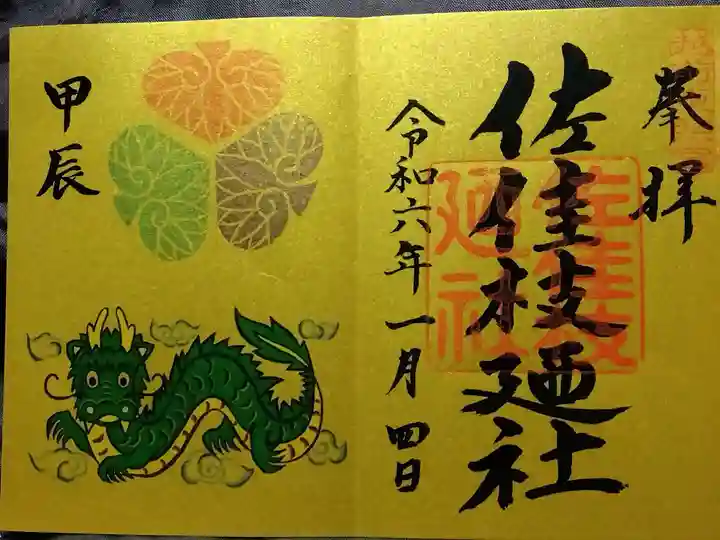 奉拝
佐佳枝廼社
佐佳枝
廼社
令和六年一月四日
甲辰